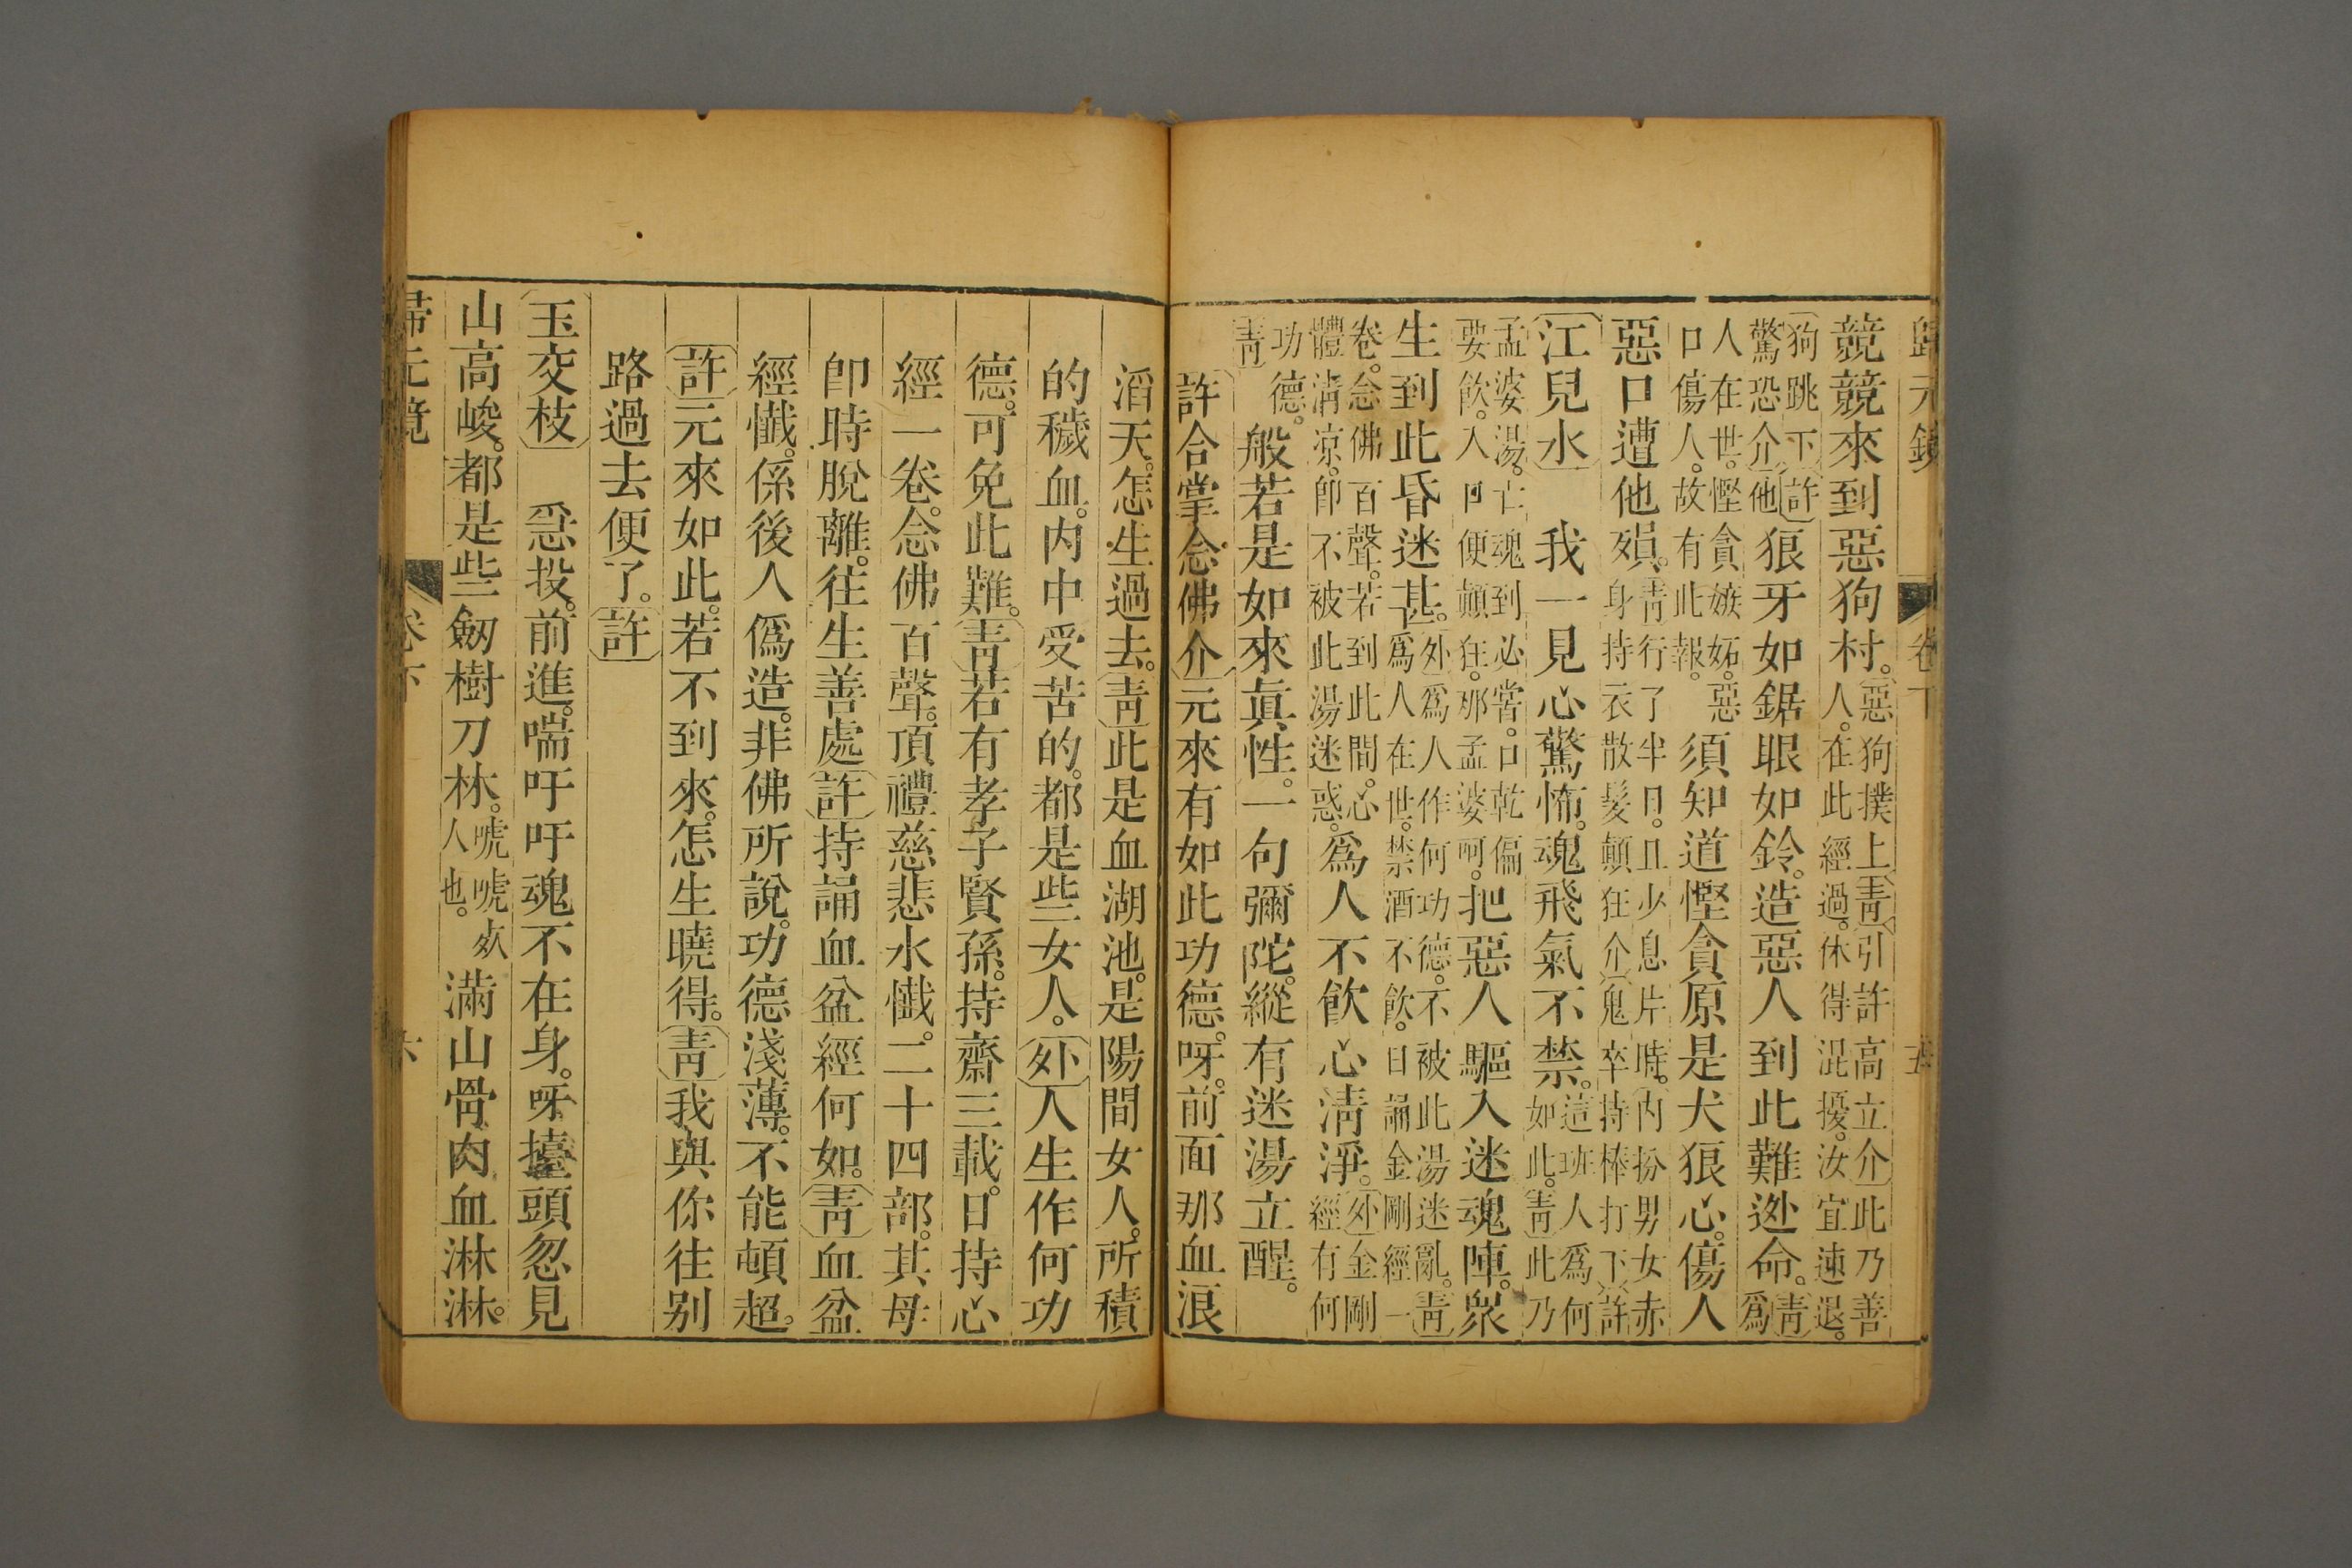 歸元鏡 卷下 五
競競來到惡狗村。
惡狗撲上靑引許高立介此乃善
人。在此經過。休得混擾。汝宜速退。
狗跳下許
驚恐介他
狠牙如鋸眼如鈴。造惡人到此難逃命。
靑
爲
人在世。慳貪嫉妬。惡
口傷人。故有此報。
須知道慳貪原是犬狠心。傷人
惡口遭他殞。
靑行了半日。且少息片時。內扮男女赤
身持衣散髮顛狂介鬼卒持棒打下許
江兒水 我一見心驚怖。魂飛氣不禁。
這班人爲何
如此。靑此乃
孟婆湯。亡魂到必嘗。口乾偏
要飲。入口便顛狂。那孟婆呵。
把惡人驅入迷魂陣。衆
生到此昏迷甚。
外爲人作何功德。不被此湯迷亂。靑
爲人在世。禁酒不飲。日誦金剛經一
卷。念佛百聲。若到此間。心
體淸凉。卽不被此湯迷惑。
爲人不飲心淸淨。
外金剛
經有何
功德。
靑
般若是如來眞性。一句彌陀。縱有迷湯立醒。
許合掌念佛介元來有如此功德。呀。前面那血浪
滔天。怎生過去。靑此是血湖池。是陽間女人。所積
的穢血。內中受苦的。都是些女人。外人生作何功
德。可免此難。靑若有孝子賢孫。持齋三載。日持心
經一卷。念佛百聲。頂禮慈悲水懺。二十四部。其母
卽時脫離。往生善處許持誦血盆經何如。靑血盆
經懺。係後人僞造。非佛所說。功德淺薄。不能頓超。
許元來如此。若不到來。怎生曉得。靑我與你往别
路過去便了。許
玉交枝 忩投。前進。喘吁吁魂不在身。呀。擡頭忽見
山高峻。都是些劒樹刀林。
唬唬欻
人也。
滿山骨肉血淋淋。
歸元鏡 卷下 六